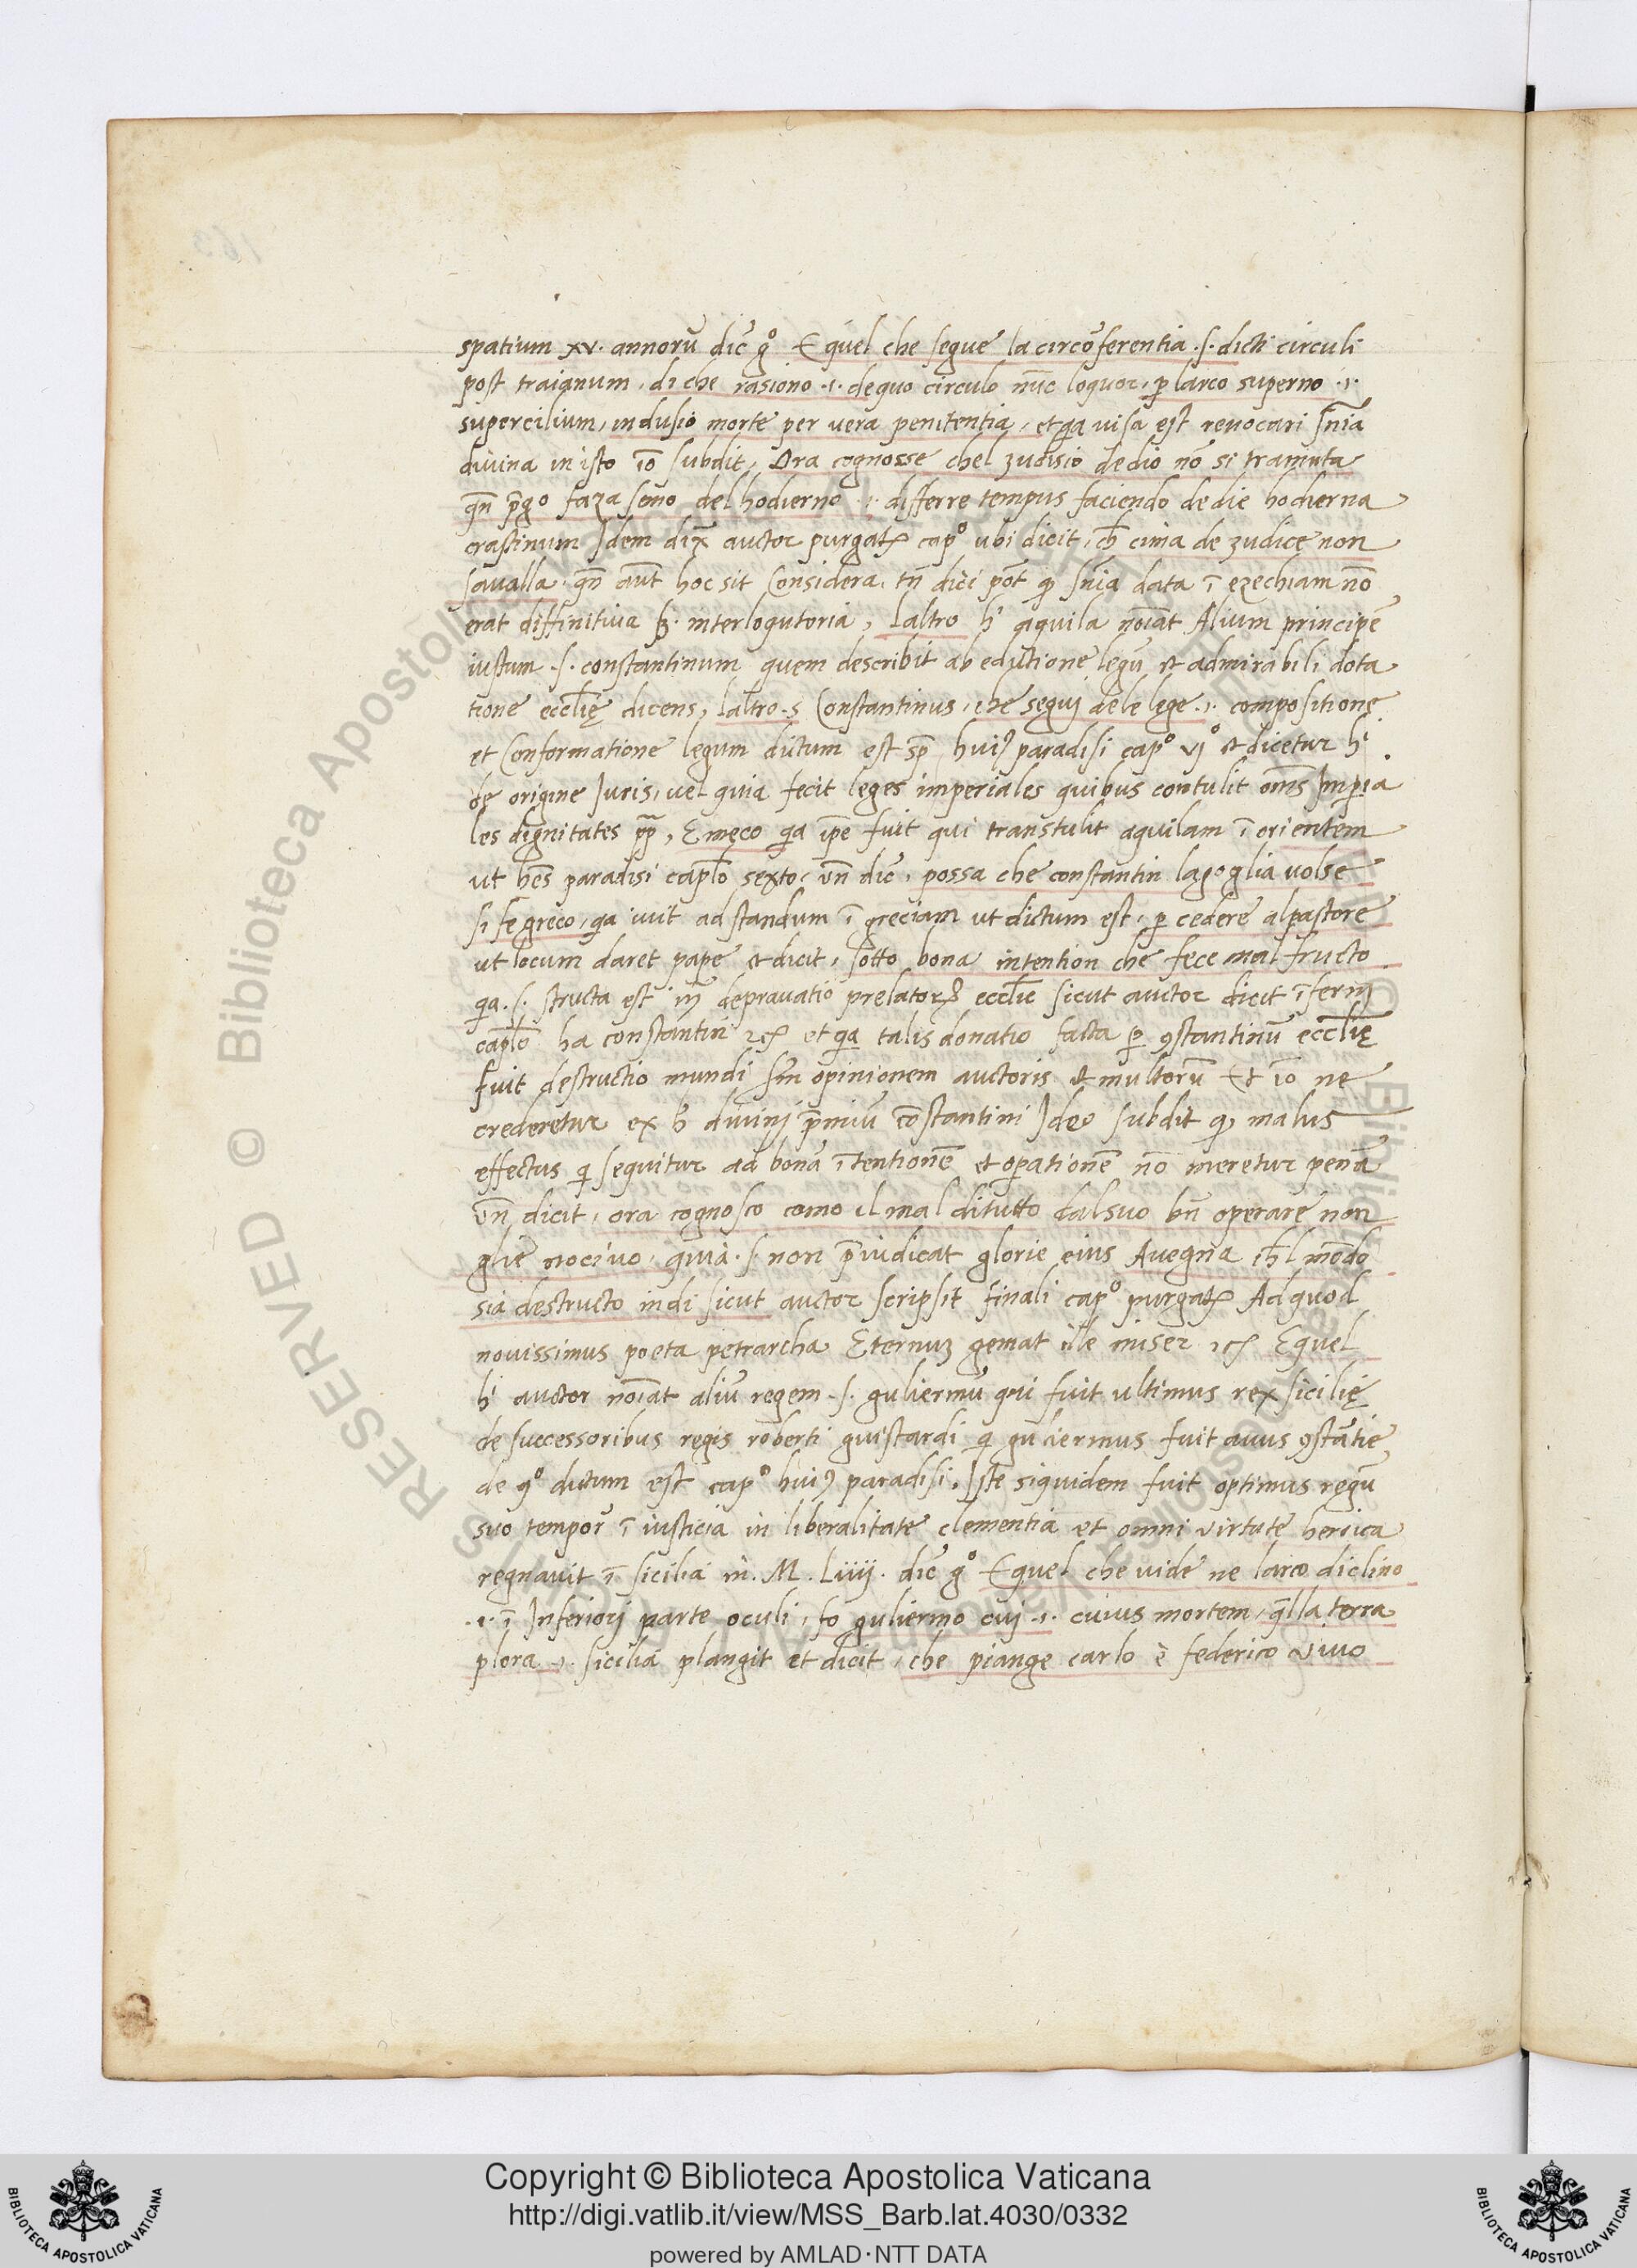 spatium xv. annorū dic̄ gº E quel che segue la circōferentia .s. dicti circuli
post traianum, di che rasiono .i. de quo circulo nūc loquor, p larco superno .i.
supercilium, indusió morte per vera penitentia, et qa visa est reuocari sn̄ia
diuina in isto iō subdit, Ora cognosse chel zudisio de dio nō si tramuta
qn̄ p̄go faza seno del hodierno .i. differre tempus faciendo de die hodierna
crastinum Idem dix̄ auctor purgat capº ubi dicit, ch cima de zudice non
saualla. qn̄ aut̄ hoc sit Considera. tn̄ dici pōt q sn̄ia data ī ezechiam nō
erat diffinitiua sꝫ. interlogutoria, Laltro h' aquila noīat Alium principē
iustum .s. constantinum quem describit ab edictione legū et admirabili dota
tione eccl̄ię dicens, laltro .s Constantinus, che seguj dele lege .i. compositione
et Conformatione legum dictum est sp̄ huiꝰ paradisi capº vjº et dicetur hⁱ
de origine Juris, vel quia fecit leges imperiales quibus contulit om̄s Imꝑia
les dignitates pp̄, E męco qa ip̄e fuit qui transtulit aquilam ī orientem
ut hēs paradisi capl̄o sexto, vn̄ dic̄, possa che constantin lagoglia volse
si fe greco, qa iuit ad standum ī greciam ut dictum est, p cedere al pastore
ut locum daret pape et dicit, sotto bona intention che fece mal fructo
qa .s. structa est in̄ deprauatio prelatorꝝ eccl̄ie sicut auctor dicit īfernj
capl̄o ha constantin et qa talis donatio facta ꝑ ꝯstantinū eccl̄ię
fuit destructio mundi sm̄ opinionem auctoris et multorū Et iō ne
crederetur ex h̄ diuinj p̄miū cōstantini Ideo subdit q, malus
effectus q sequitur ad bonā ītentionē et oꝑationē nō meretur penā
vn̄ dicit, ora cognosco como il mal ditutto dalsuo bn̄ operare non
glie nociuo, quia .s. non p̄iudicat glorie eius Auegna ch̄l mōdo
sia destructo indi sicut auctor scripsit finali capº purgat Ad quod
nouissimus poeta petrarcha Eternuꝫ gemat ille miser Equel
hⁱ auctor noīat aliū regem .s. guliermū qui fuit ultimus rex sicilię
de successoribus regis roberti guistardi q guliermus fuit auus ꝯstātie
de qº dictum est capº huiꝰ paradisi, Iste siquidem fuit optimus regū
suo tempor̄ ī iusticia in liberalitate clementia et omni virtute heroica
regnauit ī sicilia in. M. Liiij. dic̄ gº Equel che vide ne larco diclino
.i. ī Inferiorj parte oculi, fo guliermo cuj .i. cuius mortem, q̄lla terra
plora .i. sicilia plangit et dicit, che piange carlo è federico viuo
Copyright © Biblioteca Apostolica Vaticana
http://digi.vatlib.it/view/MSS_Barb.lat.4030/0332
powered by AMLAD·NTT DATA